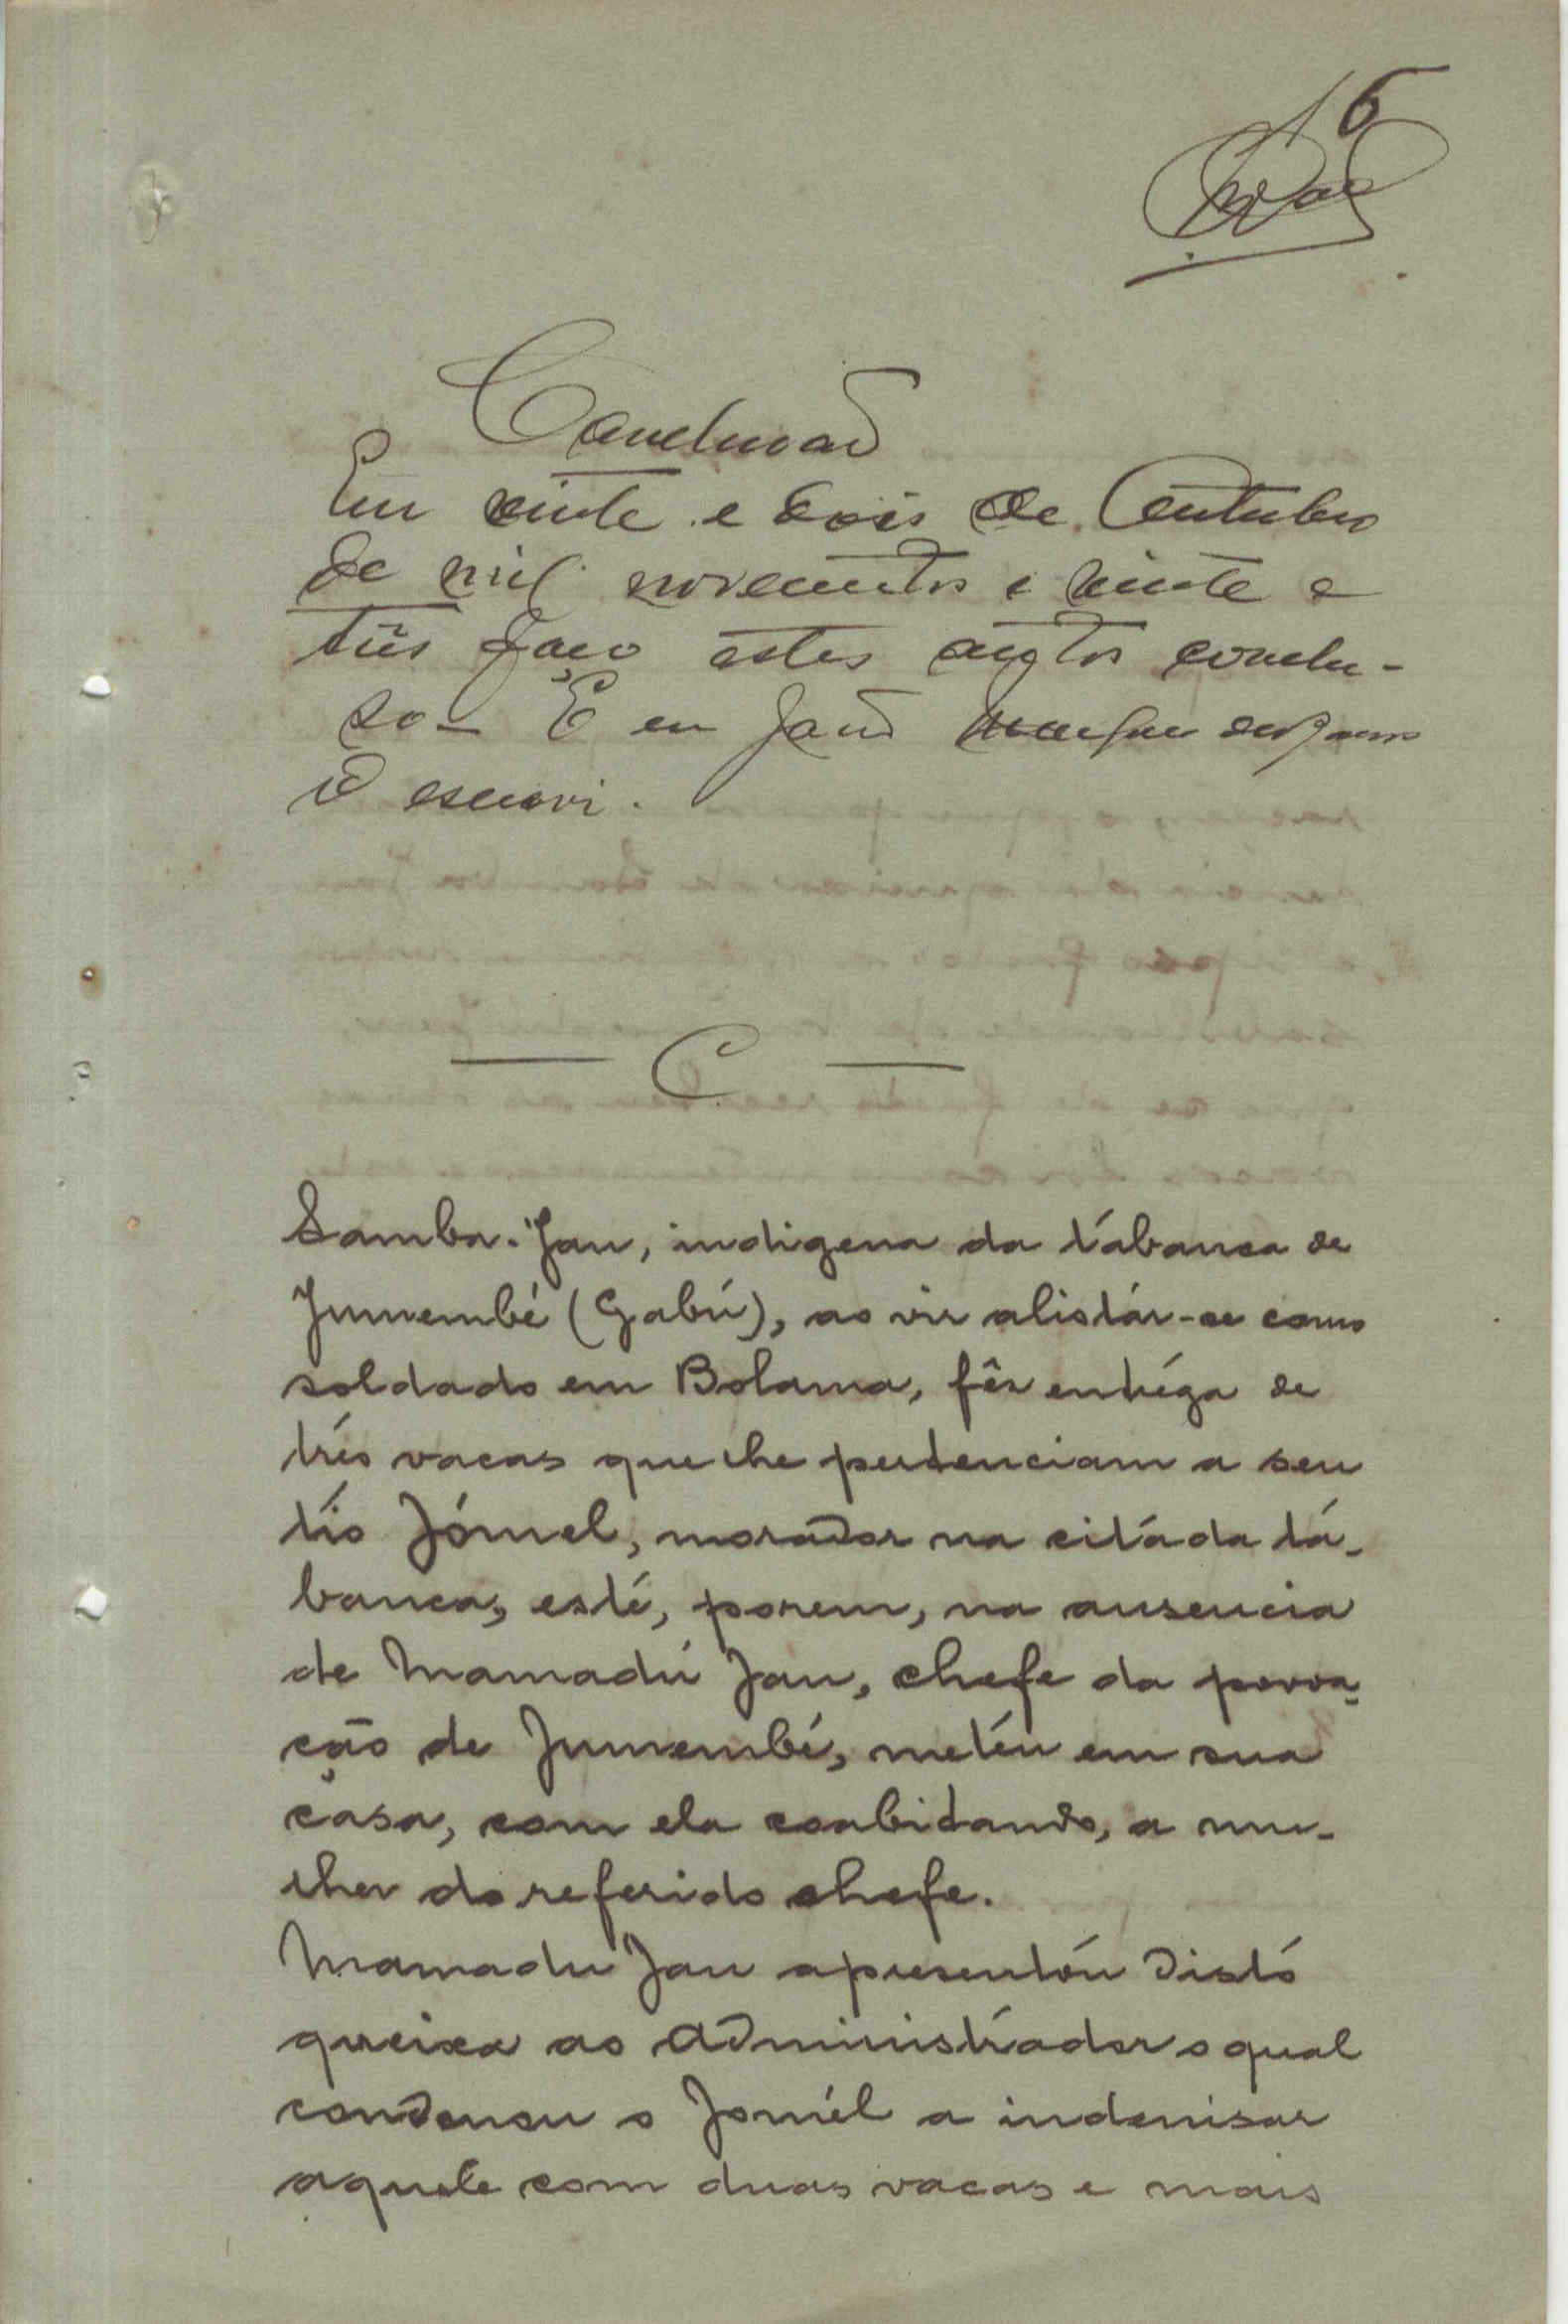 6
Conclusão
Em vinte e dois de Outubro
de mil novecentos e vinte e
três faço estes autos conclu-
so - E eu João
o escrevi.
C.
Samba Jau, indigena da tábanca de
Jumembé (Gabú), ao vir alistár-se como
soldado em Bolama, fês entréga de
três vacas que lhe pertenciam a seu
tio Jómel, morador na citáda tá-
banca, esté, porem, na ausencia
de Mamadú Jau, chefe da povoa-
ção de Jumembé, metéu em sua
casa, com ela coabitando, a mu-
lher do referido chefe.
Mamadu Jau apresentóu distó
queixa ao Administrador o qual
condenou o Jomél a indemnisar
aquele com duas vacas e mais